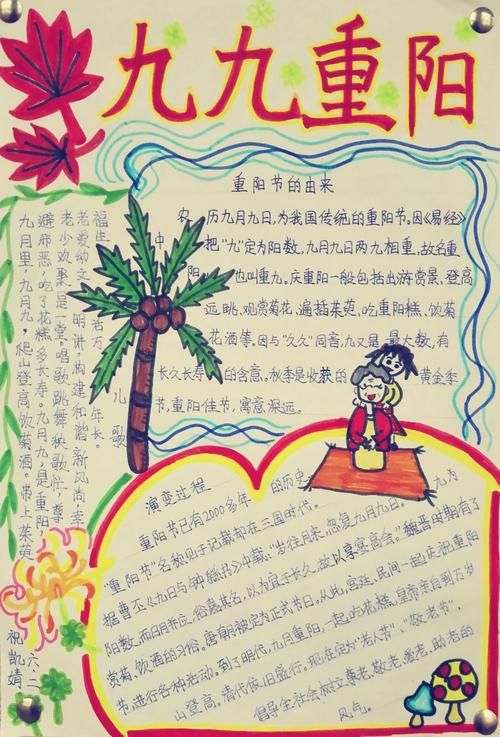 九九重阳
重阳节的由来
农历九月九日,为我国传统的重阳节。因《易经》
中把"九"定为阳数,九月九日两九相重,故名重
阳,也叫重九。庆重阳一般包括出游赏景、登高
远眺、观赏菊花、遍插茱萸、吃重阳糕、饮菊
花酒等,因与"久久"同音,九又是最大数,有
长久长寿的含意。秋季是收获的黄金季
节,重阳佳节,寓意深远。
儿歌
九月里,九月九,爬山登高饮菊酒。带上茱萸
避邪恶,吃了花糕多长寿。九月九,是重阳,
老少欢聚是一堂。唱歌跳舞秧歌忙,尊
老爱幼文明讲。构建和谐新风尚,幸
福生活万年长。
演变过程
重阳节已有2000多年的历史,
"重阳"名称见于记载却在三国时代。
据曹丕《九日与钟繇书》中载:"岁往月来,忽复九月九日。九为
阳数,而日月并应,俗嘉其名,以为宜于长久,故以享宴高会。"魏晋时期有了
赏菊、饮酒的习俗。唐朝被定为正式节日。从此,宫廷、民间一起庆祝重阳
节,进行各种活动。到了明代,九月重阳,一起吃花糕,皇帝亲自到万岁
山登高。清代依旧盛行。现在定为"老人节"、"敬老节",
倡导全社会树立尊老、敬老、爱老、助老的
风气。
六、二
祝凯婧